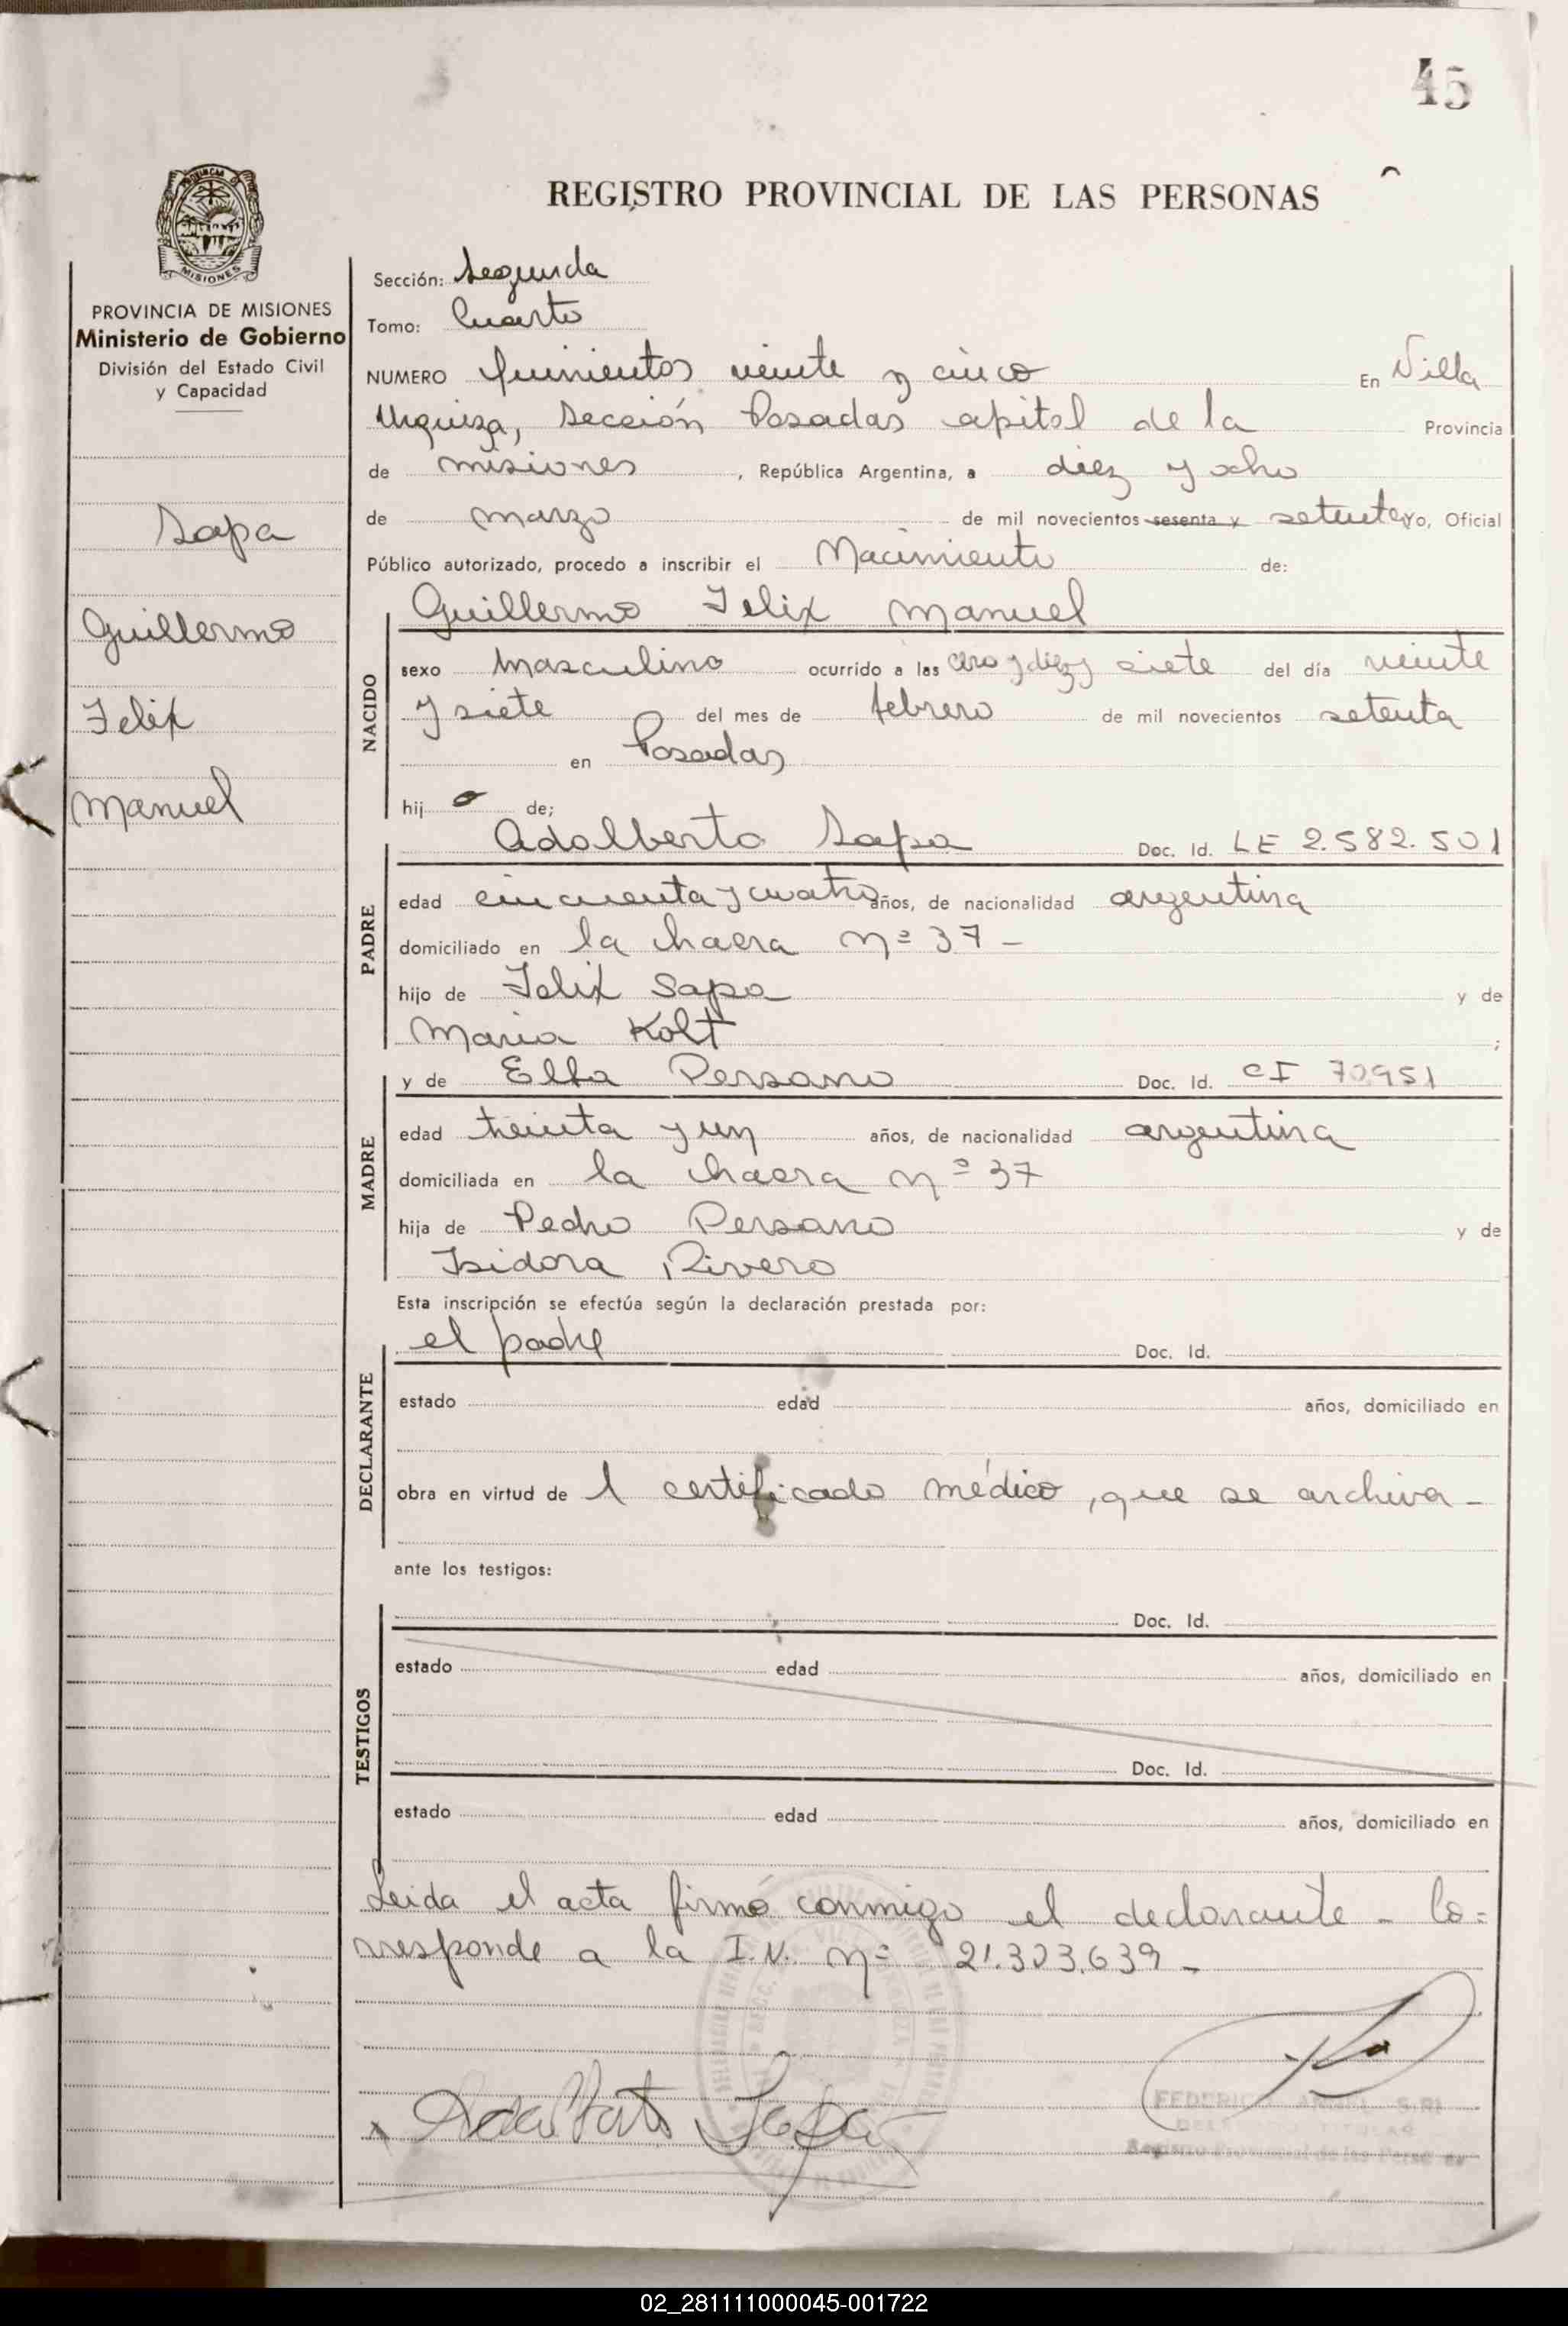 45
REGISTRO PROVINCIAL DE LAS PERSONAS
PROVINCIA DE MISIONES
Ministerio de Gobierno
División del Estado Civil
y Capacidad
Sapa
Guillermo
Felix
Manuel
Sección: Segunda
Tomo: Cuarto
NUMERO quinientos veinte y cinco En Villa
Urquiza, Sección Posadas apitol de la Provincia
de misiones, República Argentina, a diez y ocho
de marzo de mil novecientos sesenta y setenta Yo, Oficial
Público autorizado, procedo a inscribir el Nacimiento de:
Guillermo Felix Manuel
NACIDO
sexo masculino ocurrido a las cero y diez y siete del día veinte
y siete del mes de febrero de mil novecientos setenta
en Posadas
hijo de;
PADRE
Adalberto Sapa Doc. Id. LE 2.582.501
edad cincuenta y cuatro años, de nacionalidad argentina
domiciliado en la chacra nº 37 -
hijo de Felix Sapa y de
Maria Kolt ;
MADRE
y de Elba Persano Doc. Id. CI 70951
edad treinta y un años, de nacionalidad argentina
domiciliada en la chacra nº 37
hija de Pedro Persano y de
Isidora Rivero
Esta inscripción se efectúa según la declaración prestada por:
DECLARANTE
el padre Doc. Id.
estado edad años, domiciliado en
obra en virtud de 1 certificado médico, que se archiva -
ante los testigos:
TESTIGOS
Doc. Id.
estado edad años, domiciliado en
Doc. Id.
estado edad años, domiciliado en
Leida el acta firmó conmigo el declarante - Co=
rresponde a la I.N. nº 21.303.639 -
Adalberto Sapa
FEDERICO
TITULAR
Registro Provincial de las
02_281111000045-001722